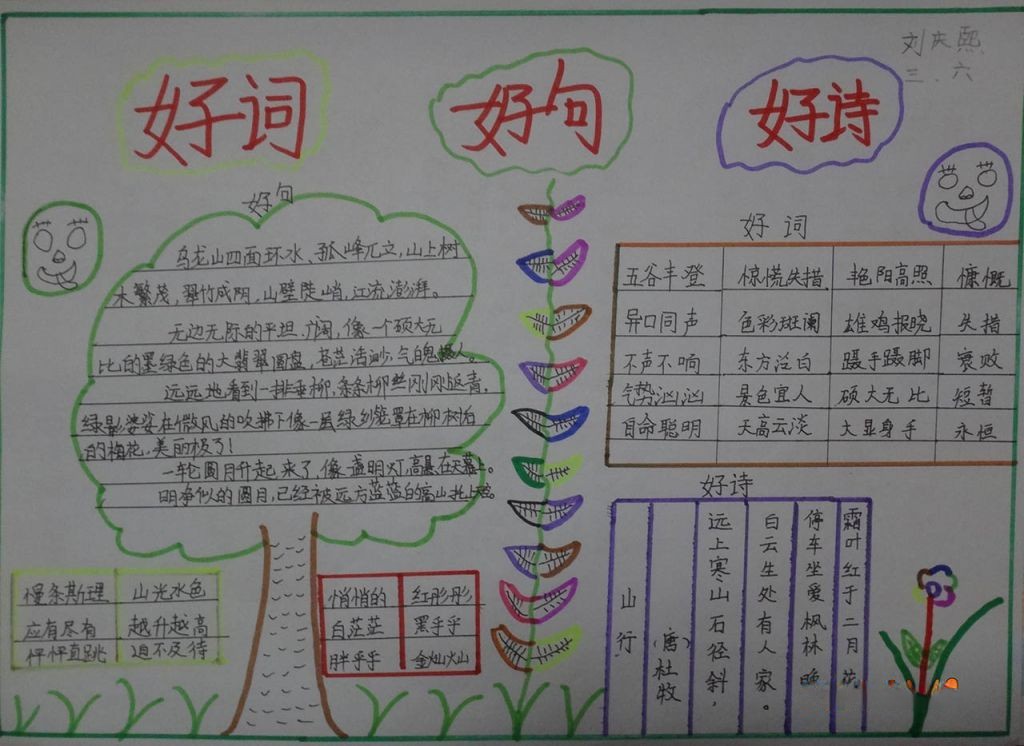 刘庆熙
三.六
好词
好句
好诗
好句
乌龙山四面环水、孤峰兀立,山上树
木繁茂,翠竹成阴,山壁陡峭,江流澎湃。
无边无际的平坦广阔,像一个硕大无
比的墨绿色的大翡翠圆盘,苍茫清渺,气魄撼人。
远远地看到一排垂柳,条条柳丝刚刚
绿影婆娑在微风的吹拂下像一
的梅花,美丽极了!
一轮圆月升起来了,像一盏明灯,高悬在天幕上。
明净似的圆月,已经被远方蓝蓝的高山托上
好词
五谷丰登 惊慌失措 艳阳高照 慷慨
异口同声 色彩斑阑 雄鸡报晓 失措
不声不响 东方泛白 蹑手蹑脚 衰败
气势汹汹 景色宜人 硕大无比 短暂
自命聪明 天高云淡 大显身手 永恒
慢条斯理 山光水色
应有尽有 越升越高
怦怦直跳 迫不及待
悄悄的 红彤彤
白茫茫 黑乎乎
胖乎乎 金灿灿
好诗
山行
(唐)杜牧
远上寒山石径斜,
白云生处有人家。
停车坐爱枫林晚
霜叶红于二月花